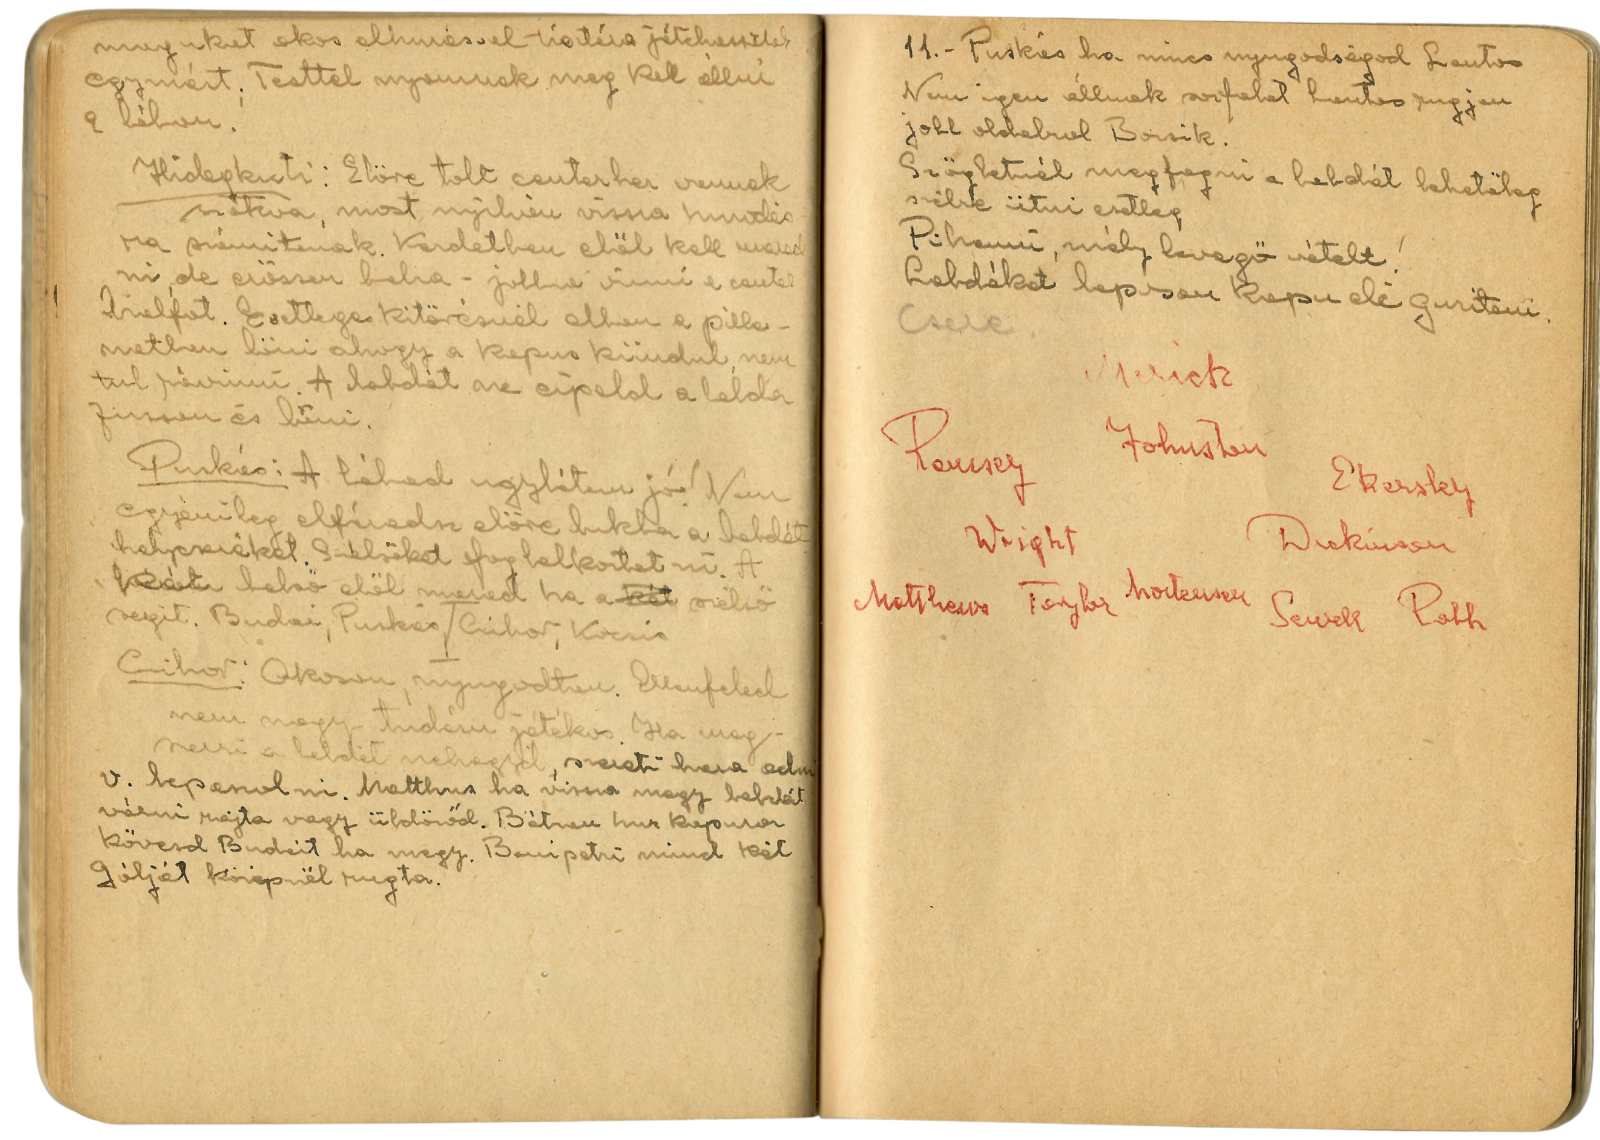 magukat okos elhúzással tisztára játszhassátok
egymást. Testtel nyomnak meg kell állni
a lábon!
Hidegkuti: Előre tolt centerhez vannak
szokva, most nyilván vissza huzodás
ra számitanak. Kezdetben elöl kell marad
ni, de erössen balra - jobbra vinni a center
halfot. Esetleges kitörésnél abban a pilla-
natban lőni ahogy a kapus kiindul, nem
tul rávinni. A labdát ne cipeld a labda
fusson és lőni.
Puskás: A lábad ugylátom jó! Nem
egyénileg elfáradsz előre lukba a labdát
helyezéket. Szélsöket foglalkoztatni. A
belsö elöl marad ha a két szélsö
segit. Budai, Puskás / Czibor, Kocsis
Czibor: Okosan, nyugodtan. Ellenfeled
nem nagy tudásu játékos. Ha meg-
szerzi a labdát nehagyd, szereti haza adni
v. lepasszolni. Matthus ha vissza megy labdát
várni rajta vagy üldözöd. Bátran huz kapura
kövesd Budait ha megy. Boniperti mind két
gólját középnél rugta.
11.- Puskás ha nincs nyugodságod Lantos
Nem igen állnak sorfalat Lantos rugjon
jobb oldalrol Bozsik.
Szögletnél megfogni a labdát lehetöleg
szélre ütni esetleg
Pihenni, mély levegö vételt!
Labdákat laposan kapu elé guritani.
Csere.
Merick
Ramsey Johnston Ekersky
Wright Dickinson
Matthews Taylor Mortensen Sewek Robb